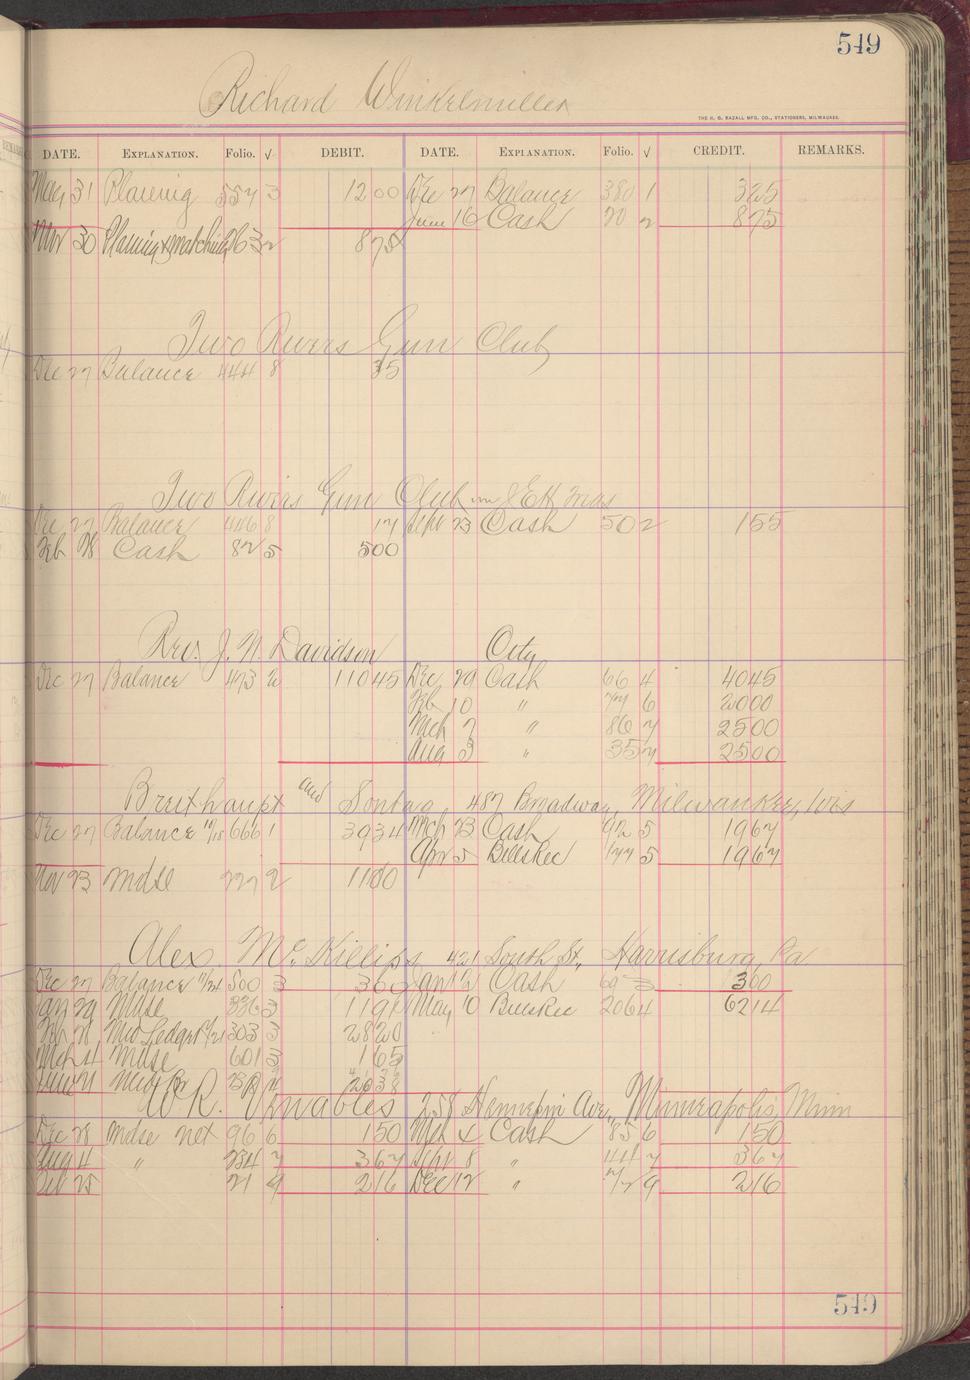 549
Richard Winkelmiller
THE H. G. RAZALL MFG. CO., STATIONERS, MILWAUKEE.
DATE. EXPLANATION. Folio. √ DEBIT. DATE. EXPLANATION. Folio. √ CREDIT. REMARKS.
May 31 Planing 557 3 1200 Dec 27 Balance 380 1 325
June 16 Cash 20 2 875
Nov 30 Planing & matching 63 2 875
Two Rivers Gun Club
Dec 27 Balance 444 8 35
Two Rivers Gun Club
Dec 27 Balance 446 8 17 Sept 23 Cash 50 2 155
Feb 28 Cash 82 5 500
Rev. J. N. Davidson City
Dec 27 Balance 473 2 11045 Dec 29 Cash 66 4 4045
Feb 10 " 77 6 2000
Mch 7 " 86 7 2500
Aug 3 " 35 7 2500
Breithaupt and Sontag, 487 Broadway, Milwaukee, Wis
Dec 27 Balance 666 1 3934 Mch 23 Cash 92 5 1967
Apr 5 Bills Rec 177 5 1967
Nov 23 Mdse 227 2 1180
Alex. McKillips 421 South St., Harrisburg, Pa
Dec 27 Balance 11/21 500 3 300 Jan 12 Cash 60 3 300
Jan 29 Mdse 336 3 1191 May 10 Bills Rec 206 4 6214
Feb 28 Mdse Ledger 303 3 2820
Mch 4 Mdse 601 3 165
June 21 2038
W. R. Venables 258 Hennepin Ave., Minneapolis, Minn
Dec 28 Mdse net 96 6 150 Mch 4 Cash 85 6 150
Aug 4 " 234 7 367 Sept 8 " 441 7 367
Oct 25 21 9 216 Dec 12 " 72 9 216
549